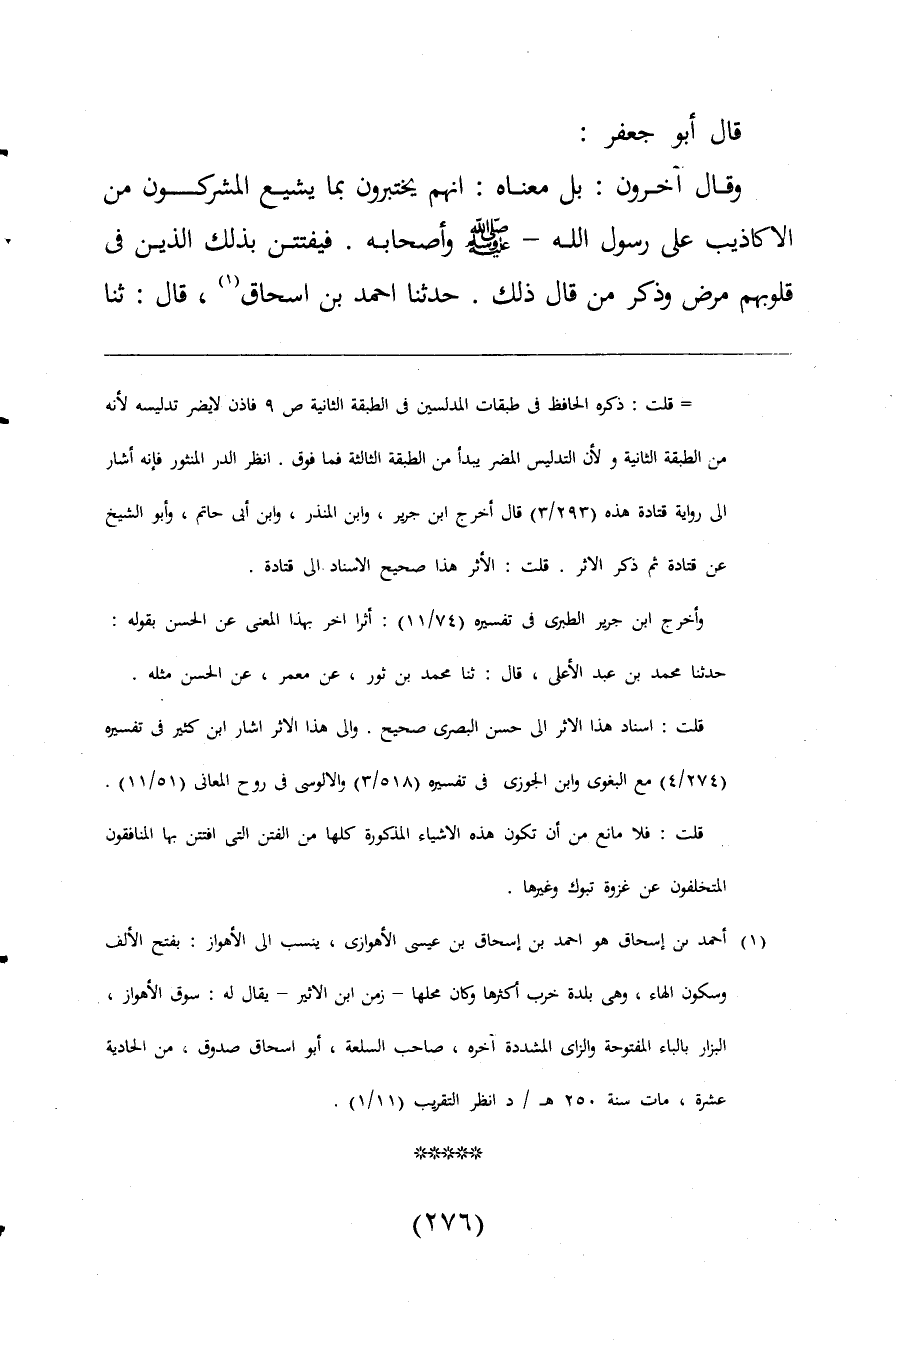 قال أبو جعفر :
وقال آخرون : بل معناه : انهم يختبرون بما يشيع المشركون من
الاكاذيب على رسول الله – ﷺ وأصحابه . فيفتتن بذلك الذين فى
قلوبهم مرض وذكر من قال ذلك . حدثنا احمد بن اسحاق(١) ، قال : ثنا
= قلت : ذكره الحافظ فى طبقات المدلسين فى الطبقة الثانية ص ٩ فاذن لايضر تدليسه لأنه
من الطبقة الثانية و لأن التدليس المضر يبدأ من الطبقة الثالثة فما فوق . انظر الدر المنثور فإنه أشار
الى رواية قتادة هذه (٣/٢٩٣) قال أخرج ابن جرير ، وابن المنذر ، وابن أبى حاتم ، وأبو الشيخ
عن قتادة ثم ذكر الاثر . قلت : الأثر هذا صحيح الاسناد الى قتادة .
وأخرج ابن جرير الطبرى فى تفسيره (١١/٧٤) : أثرا اخر بهذا المعنى عن الحسن بقوله :
حدثنا محمد بن عبد الأعلى ، قال : ثنا محمد بن ثور ، عن معمر ، عن الحسن مثله .
قلت : اسناد هذا الاثر الى حسن البصرى صحيح . والى هذا الاثر اشار ابن كثير فى تفسيره
(٤/٢٧٤) مع البغوى وابن الجوزى فى تفسيره (٣/٥١٨) والالوسى فى روح المعانى (١١/٥١) .
قلت : فلا مانع من أن تكون هذه الاشياء المذكورة كلها من الفتن التى افتتن بها المنافقون
المتخلفون عن غزوة تبوك وغيرها .
(١) أحمد بن إسحاق هو احمد بن إسحاق بن عيسى الأهوازى ، ينسب الى الأهواز : بفتح الألف
وسكون الهاء ، وهى بلدة خرب أكثرها وكان محلها – زمن ابن الاثير – يقال له : سوق الأهواز ،
البزار بالباء المفتوحة والزاى المشددة آخره ، صاحب السلعة ، أبو اسحاق صدوق ، من الحادية
عشرة ، مات سنة ٢٥٠ هـ / د انظر التقريب (١/١١) .
*****
(٢٧٦)